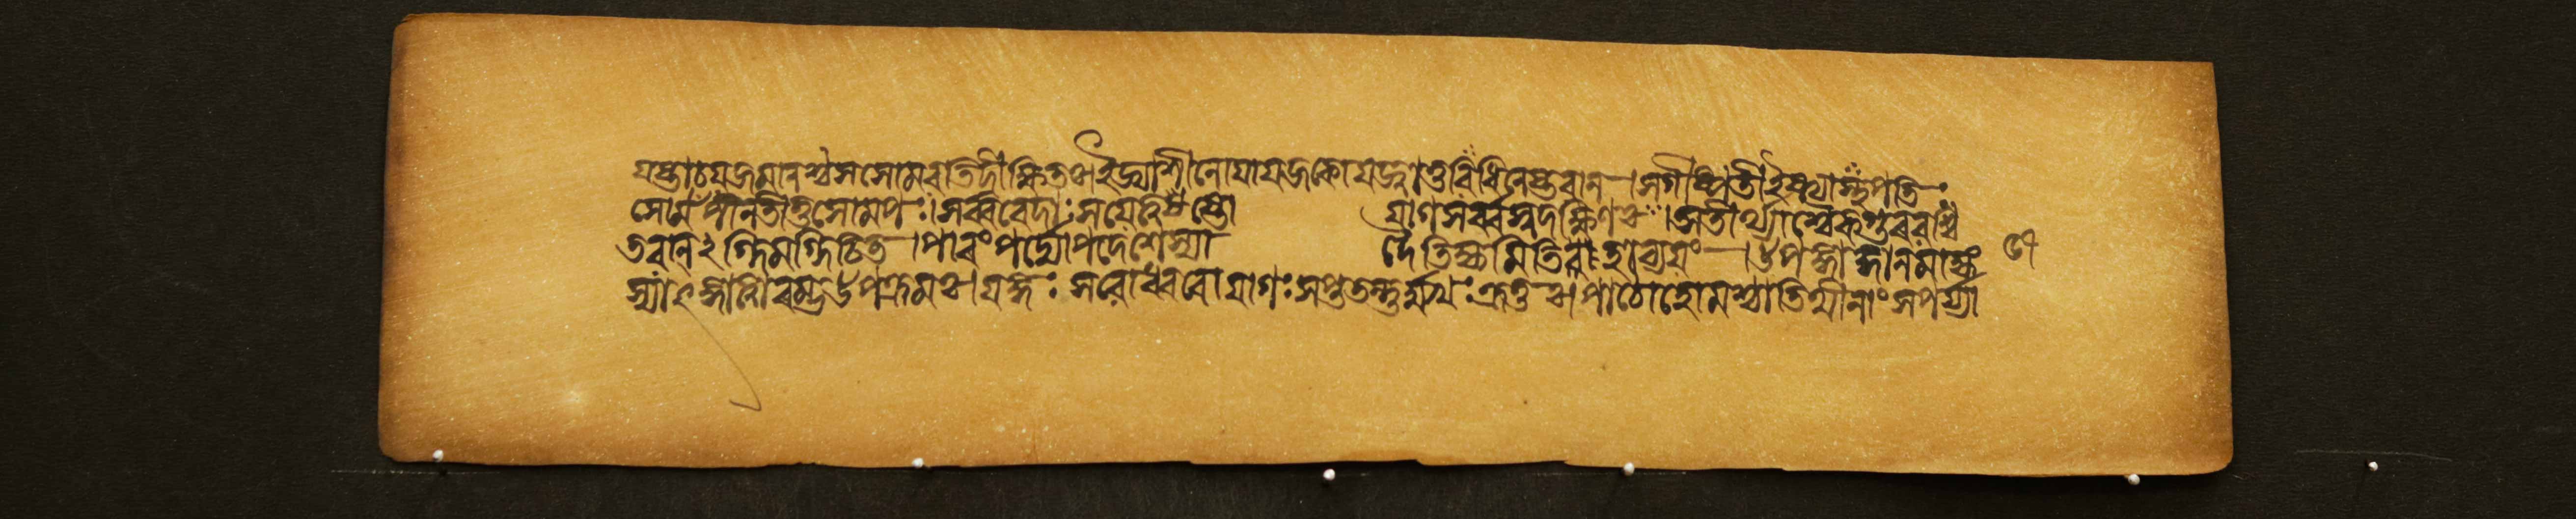 যষ্টাচযজমানশ্চসসোমৱতিদীক্ষিতঃ।ইজ্যাশীলোযাযজূকোযজ্বাতুৱিধিনেষ্টৱান্।সগীষ্পতীইষ্ট্যাস্থপতিঃ
সোমপীনতীতুসোমপঃ।সর্ব্ববেদাঃসযেনেষ্টো যাগসর্ব্বস্বদক্ষিণঃ।সতীর্থ্যাশ্চৈকগুৰৱশ্চি
তৱানগ্নিমগ্নিচিত।পাৰংপর্য্যোপদেশেস্যা দৈতিহ্যমিতিহাৱ্যযং।উপজ্ঞাজ্ঞানমাদ্যং
স্যাজ্জ্ঞাত্বাৰম্ভউপক্রমঃ।যজ্ঞঃসৱোধ্বৰোযাগঃসপ্ততন্তুর্ম্মখঃক্রতুঃ।পাঠোহোমশ্চাতিথীনাংসপর্য্যা